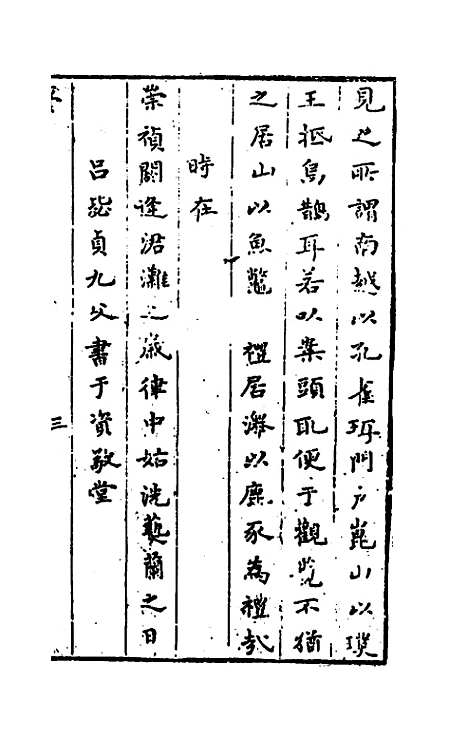 見也所謂南越以孔雀珥門戶崑山以璞
王抵烏鵲耳若以案頭取便于觀覽不猶
之居山以魚鼈禮居澤以鹿豕為禮哉
時在
崇禎閼逢涒灘之歲律中姑洗蓺蘭之日
呂毖貞九父書于資敬堂
三